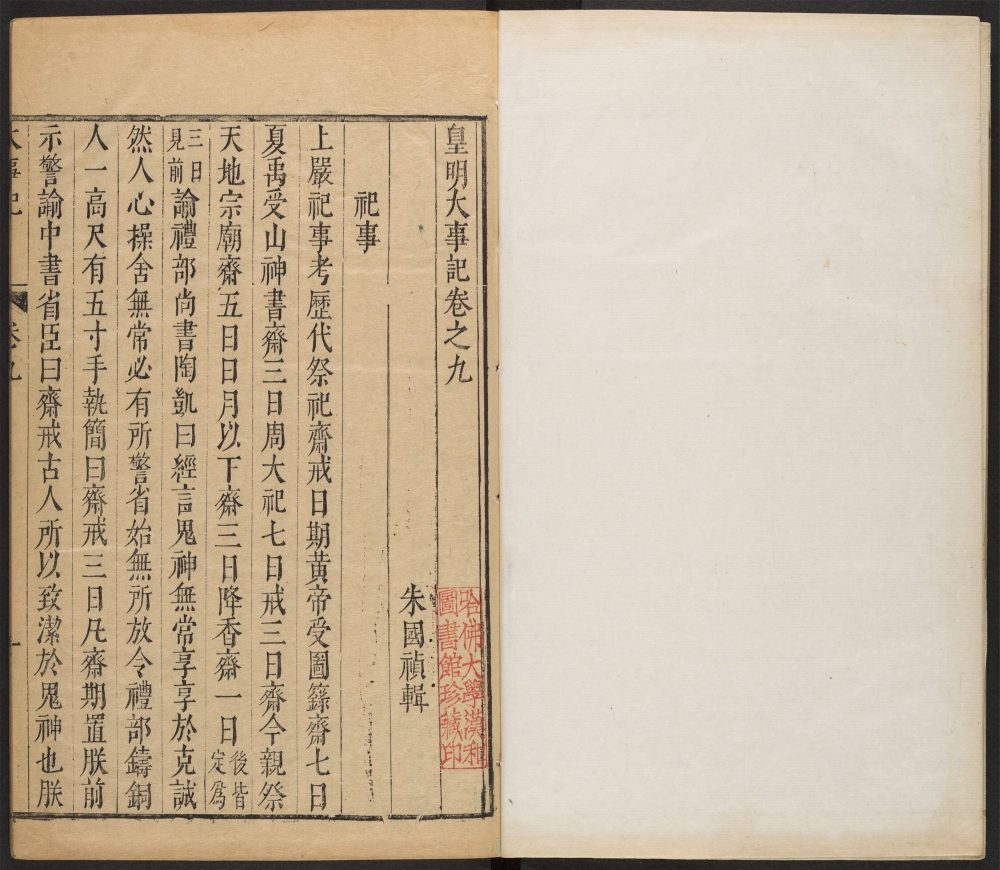 皇明大事記卷之九
朱國禎輯
祀事
上嚴祀事考歷代祭祀齋戒日期黃帝受圖籙齋七日
夏禹受山神書齋三日周大祀七日戒三日齋今親祭
天地宗廟齋五日日月以下齋三日降香齋一日後皆定爲
三日見前諭禮部尚書陶凱曰經言鬼神無常享享於克誠
然人心操舍無常必有所警省始無所放令禮部鑄銅
人一高尺有五寸手執簡曰齋戒三日凡齋期置朕前
示警諭中書省臣曰齋戒古人所以致潔於鬼神也朕
大事記 卷九 一
哈佛大學漢和
圖書館珍藏印